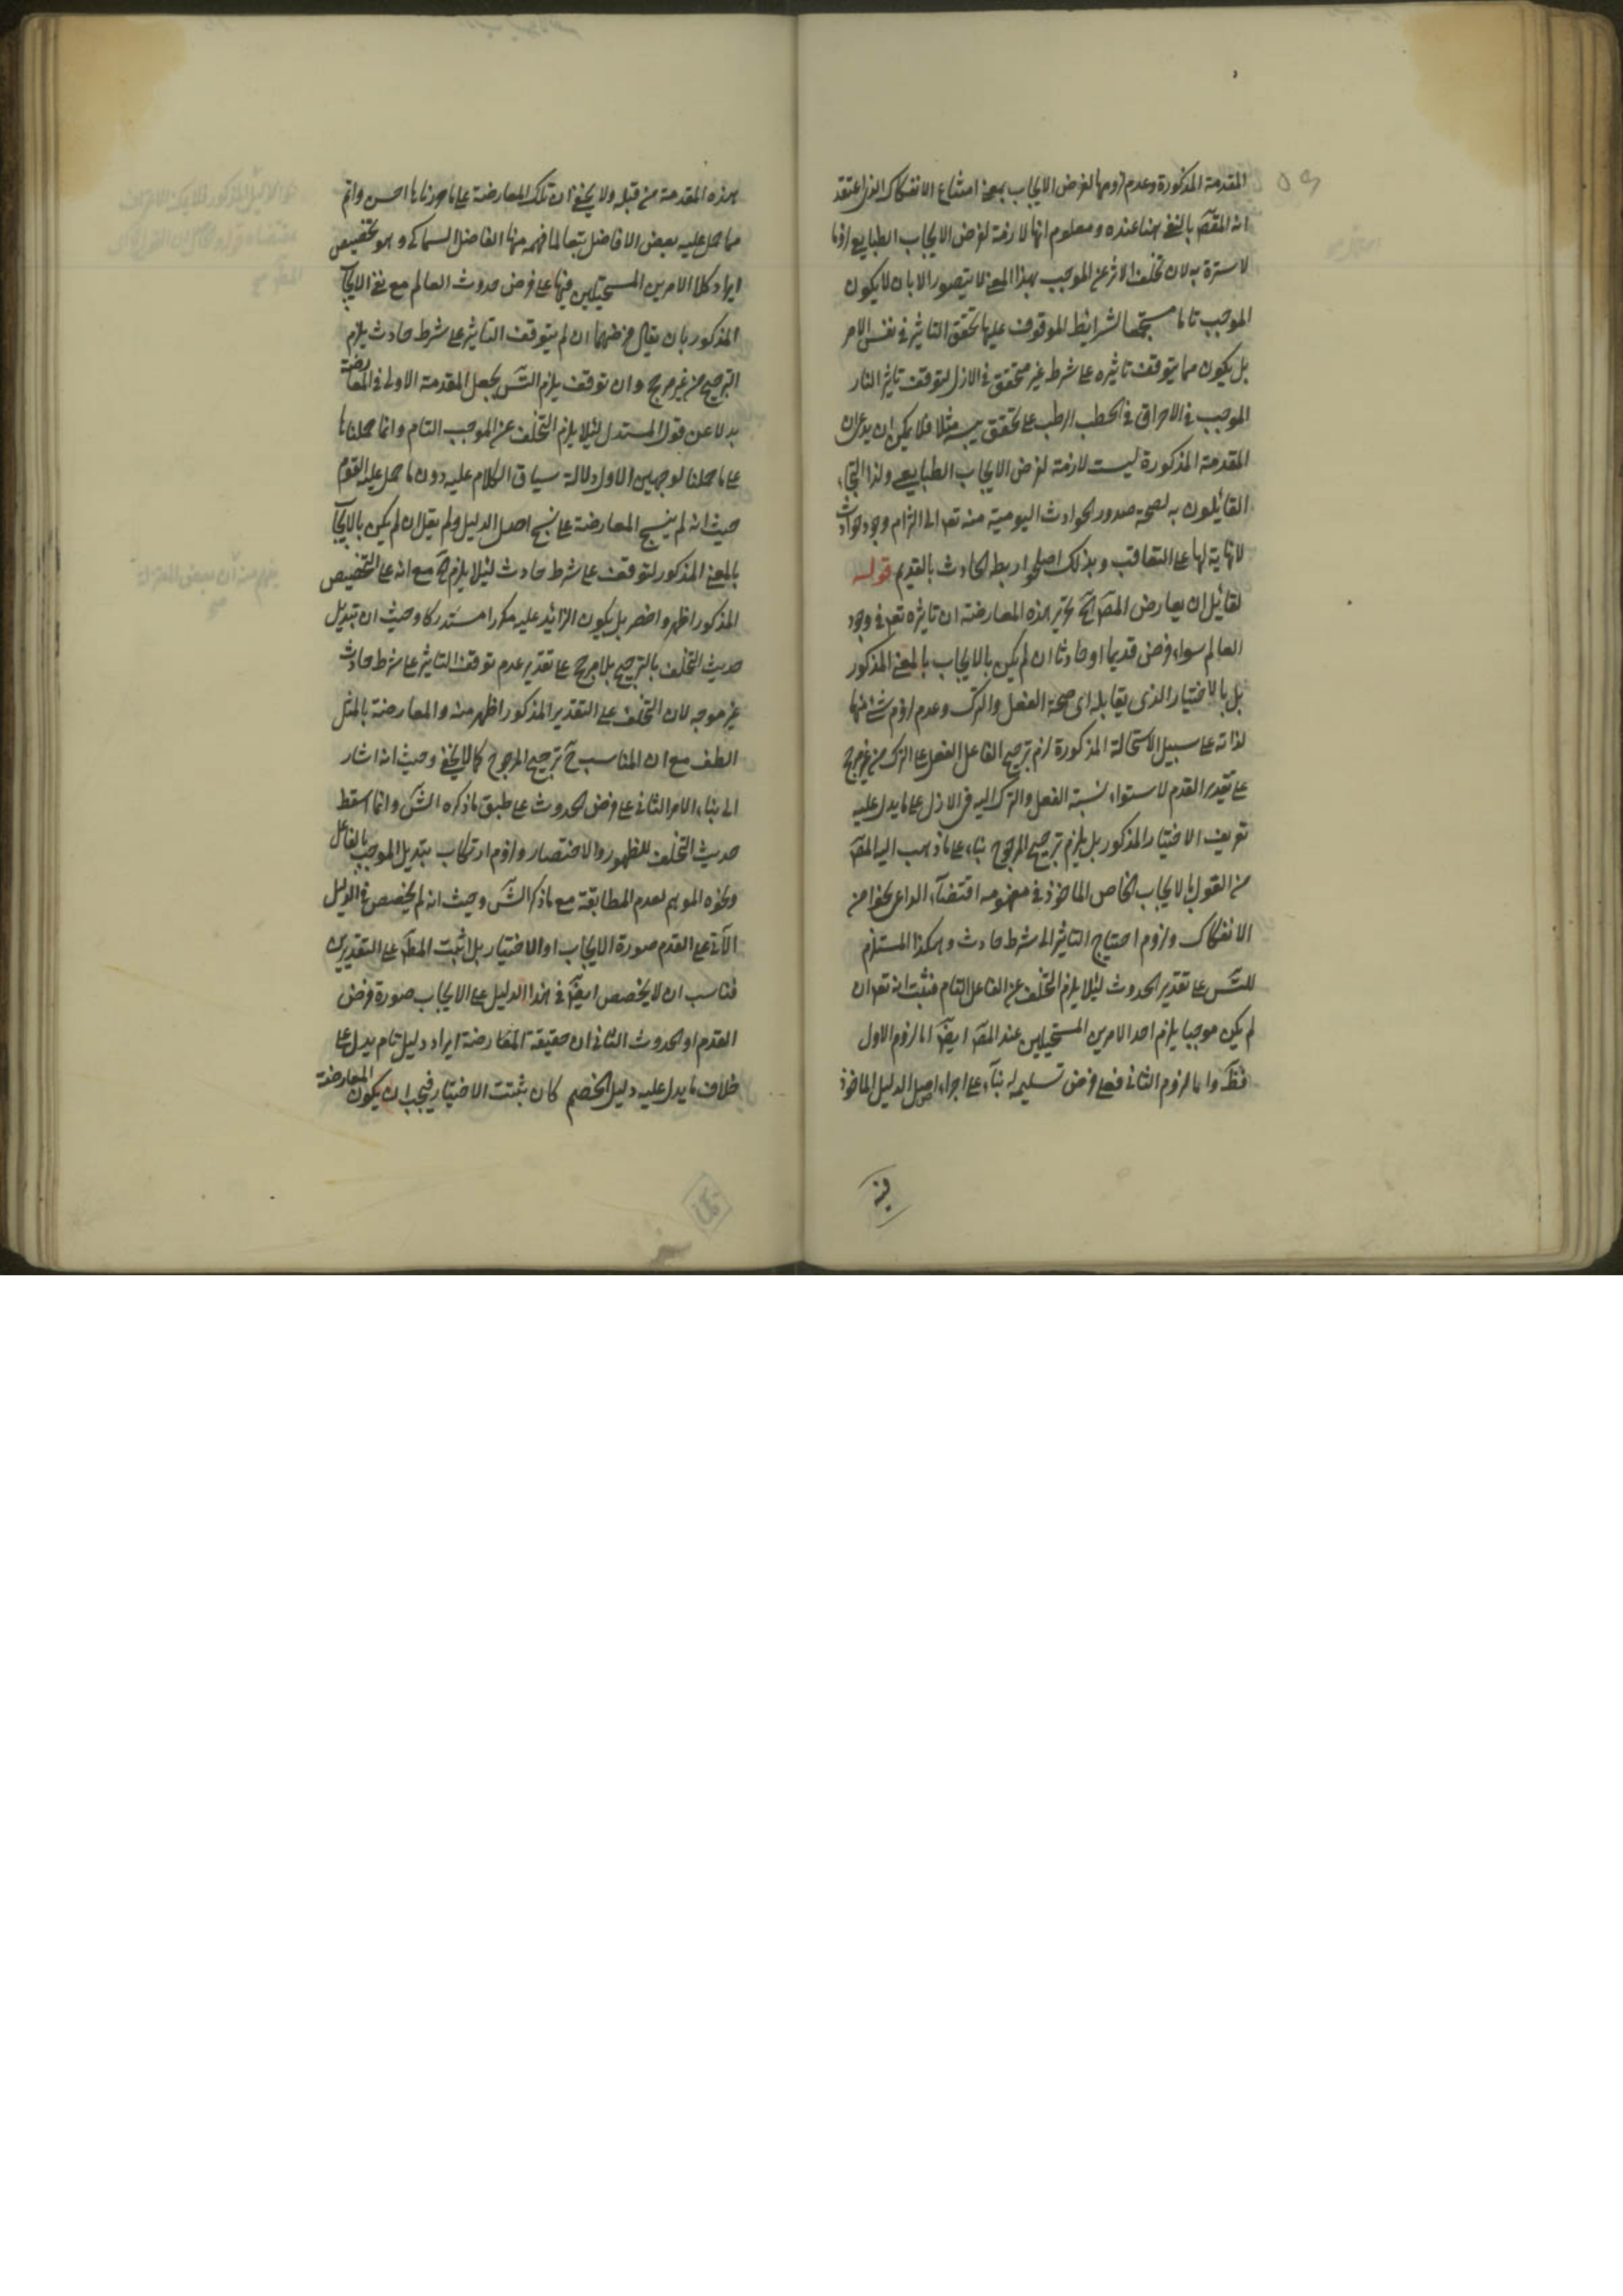 المقدمة المذكورة وعدم لزومها لفرض الايجاب بمعنى امتناع الانفكاك الذى اعتقد
انه المقصَ بالنفى هنا عنده ومعلوم انها لازمة لفرض الايجاب الطبايعى لزوما
لا سترة به لان تخلف الاثر عن الموجب بهذا المعنى لا يتصور الا بان لا يكون
الموجب تاما مستجمعا لشرايط الموقوف عليها تحقق التاثير فى نفس الامر
بل يكون مما يتوقف تاثيره على شرط غير متحقق فى الازل لتوقف تاثير النار
الموجب فى الاحراق فى الحطب الرطب على تحقق يبسه مثلا فلا يمكن ان يدعى ان
المقدمة المذكورة ليست لازمة لفرض الايجاب الطبايعى ولذا التجاء
القائلون به لصحة صدور الحوادث اليومية منه تعم الى التزام وجود حوادث
لا نهاية لها على التعاقب وبذلك اصلحوا ربط الحادث بالقديم قوله
لقائل ان يعارض المقصَ الخ تحرير هذه المعارضة ان تاثيره تعم فى وجود
العالم سواء فرض قديما او حادثا ان لم يكن بالايجاب بالمعنى المذكور
بل بالاختيار الذى يقابله اى صحة الفعل والترك وعدم لزوم شئ منها
لذاته على سبيل الاستحالة المذكورة لزم ترجيح الفاعل الفعل على الترك من غير مرجح
على تقدير القدم لاستواء نسبة الفعل والترك اليه فى الازل على ما يدل عليه
تعريف الاختيار المذكور بل يلزم ترجيح المرجوح بناء على ما ذهب اليه المقصَ
من القول بالايجاب الخاص الماخوذ فى مفهومه اقتضاء الداعى نحوا من
الانفكاك ولزوم احتياج التاثير الى شرط حادث وهكذا المستلزم
للتسَ على تقدير الحدوث لئلا يلزم التخلف عن الفاعل التام فثبت انه تعم ان
لم يكن موجبا يلزم احد الامرين المستحيلين عند المصَ ايضَ اما لزوم الاول
فظَ واما لزوم الثانى فعلى فرض تسليمه بناء على اجراء اصل الدليل الماخوذ
فيه
هذه المقدمة من قبله ولا يخفى ان تلك المعارضة على ما حررناها احسن واتم
مما حمل عليه بعض الافاضل تبعا لما فهمه منها الفاضل السماكى وهو تخصيص
ايراد كلا الامرين المستحيلين فيها على فرض حدوث العالم مع نفى الايجاب
المذكور بان يقال فى ضنهما ان لم يتوقف التاثير على شرط حادث يلزم
الترجيح من غير مرجح وان توقف يلزم التسَ بجعل المقدمة الاولى فى المعارضة
بدلا عن قول المستدل لئلا يلزم التخلف عن الموجب التام وانما حملناها
على ما حملنا لوجهين الاول دلالة سياق الكلام عليه دون ما حمل عليه القوم
حيث انه لم ينسج المعارضة على نسج اصل الدليل ولم يقل ان لم يكن بالايجاب
بالمعنى المذكور لتوقف على شرط حادث لئلا يلزم الخ مع انه على التخصيص
المذكور اظهر واخصر بل يكون الزائد عليه مكررا مستدركا وحيث ان تبديل
حديث التخلف بالترجيح بلا مرجح على تقدير عدم توقف التاثير على شرط حادث
غير موجه لان التخلف على التقدير المذكور اظهر منه والمعارضة بالمثل
الطف مع ان المناسب حَ ترجيح المرجوح كما لا يخفى وحيث انه اشار
الى بناء الامر الثانى على فرض الحدوث على طبق ما ذكره الشَ وانما اسقط
حديث التخلف للظهور والاختصار ولزوم ارتكاب تبديل الموجب بالفاعل
ونحوه الموهم لعدم المطابقة مع ما ذكر الشَ وحيث انه لم يخصص فى الدليل
الآتى على القدم صورة الايجاب او الاختيار بل اثبت المطَ على التقديرين
فناسب ان لا يخصص ايضَ فى هذا الدليل على الايجاب صورة فرض
القدم او الحدوث الثانى ان حقيقة المعارضة ايراد دليل تام يدل على
خلاف ما يدل عليه دليل الخصم كان يثبت الاختيار فيجب ان يكون المعارضة